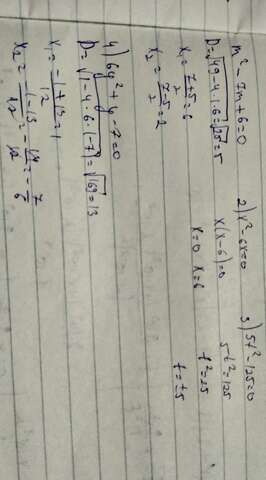 m² - 7m + 6 = 0
D = √49 - 4·1·6 = √25 = 5
x₁ = 7+5/2 = 6
x₂ = 7-5/2 = 2
2) x² - 6x = 0
x(x-6) = 0
x = 0 x = 6
3) 5t² - 125 = 0
5t² = 125
t² = 25
t = ±5
4) 6y² + y - 7 = 0
D = √1 - 4·6·(-7) = √169 = 13
x₁ = -1+13/12 = 1
x₂ = -1-13/12 = -14/12 = -7/6